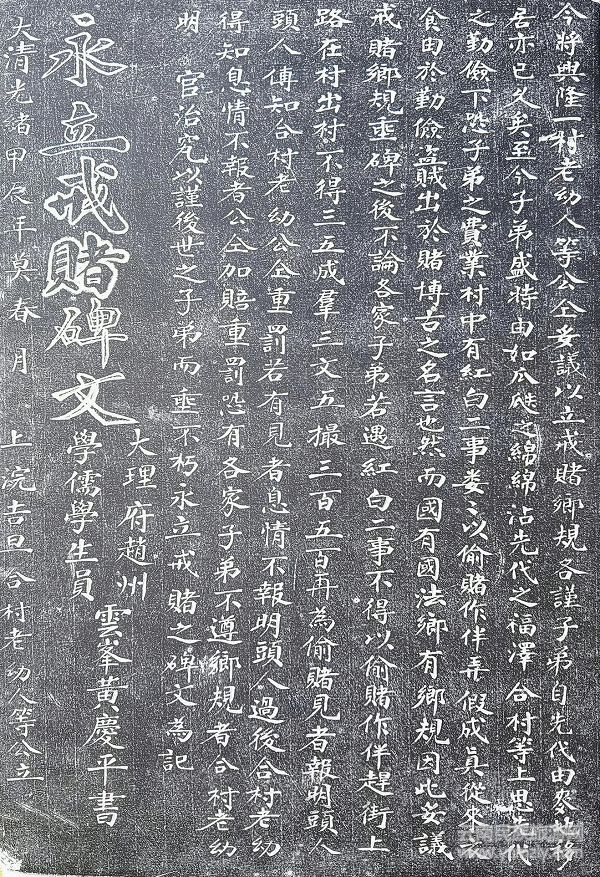 今將興隆一村老幼人等公仝妥議以立戒賭鄉規各謹子弟自先代由
居亦已久矣至今子弟盛特由如瓜瓞之綿綿沾先代之福澤合村等上思先代
之勤儉下恐子弟之費業村中有紅白二事屢〻以偷賭作伴弄假成真從來
食由於勤儉盜賊出於賭博古之名言也然而國有國法鄉有鄉規因此妥議
戒賭鄉規垂碑之後不論各家子弟若遇紅白二事不得以偷賭作伴趕街上
路在村出村不得三五成羣三文五撮三百五百再為偷賭見者報明頭人
頭人傳知合村老幼公仝重罰若有見者息情不報明頭人過後合村老幼
得知息情不報者公仝加賠重罰恐有各家子弟不遵鄉規者合村老幼
明 官治究以謹後世之子弟而垂不朽永立戒賭之碑文為記
永立戒賭碑文
大理府趙州
雲峯黃慶平書
學儒學生員
大清光緒甲辰年莫春月 上浣吉旦合村老幼人等公立